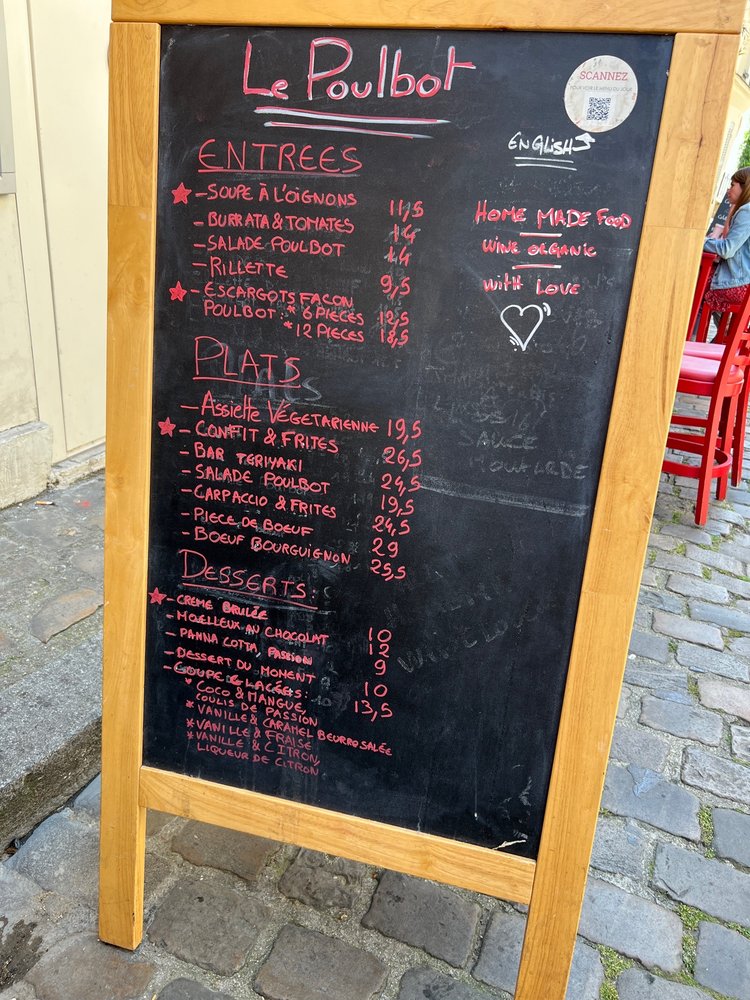 Le Poulbot
SCANNEZ
POUR VOIR LE MENU DU JOUR
ENGLISH
HOME MADE FOOD
WINE ORGANIC
WITH LOVE
ENTREES
- SOUPE À L'OIGNONS 11,5
- BURRATA & TOMATES 14
- SALADE POULBOT 14
- RILLETTE 9,5
- ESCARGOTS FACON
POULBOT : * 6 PIECES 12,5
* 12 PIECES 18,5
PLATS
- ASSIETTE VÉGETARIENNE 19,5
- CONFIT & FRITES 26,5
- BAR TERIYAKI 24,5
- SALADE POULBOT 19,5
- CARPACCIO & FRITES 24,5
- PIECE DE BOEUF 29
- BOEUF BOURGUIGNON 25,5
SAUCE
MOUTARDE
DESSERTS :
- CREME BRULÉE 10
- MOELLEUX AU CHOCOLAT 12
- PANNA COTTA, PASSION 9
- DESSERT DU MOMENT 10
- COUPE GLACÉES : 13,5
* COCO & MANGUE,
COULIS DE PASSION
* VANILLE & CARAMEL BEURRE SALÉE
* VANILLE & FRAISE
* VANILLE & CITRON,
LIQUEUR DE CITRON